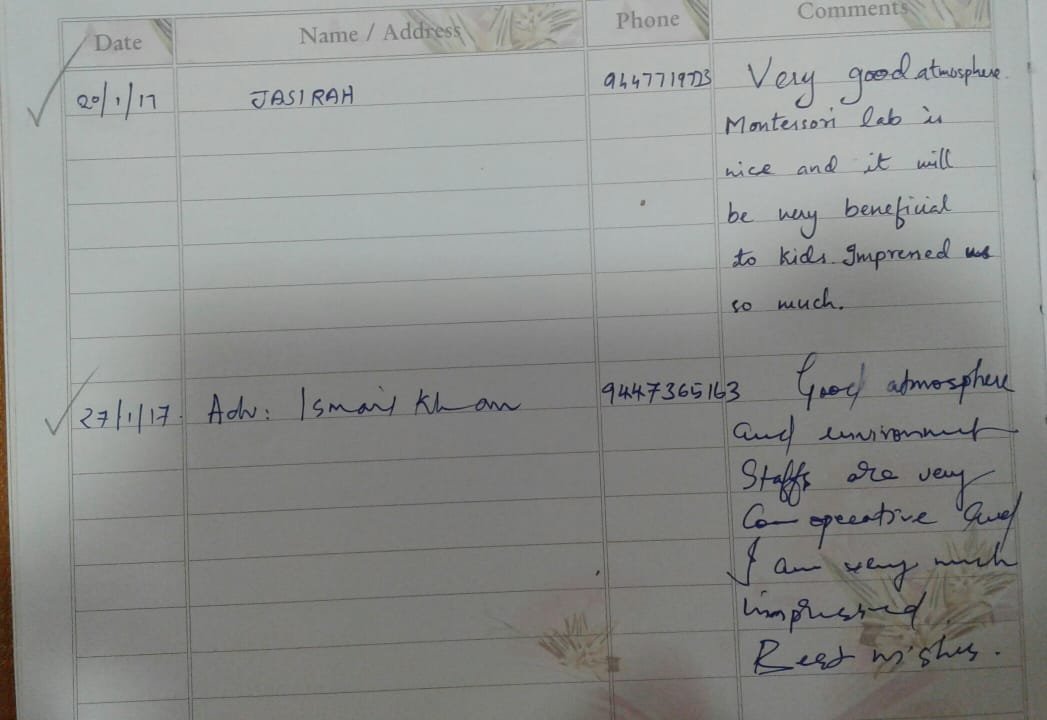 Date Name / Address Phone Comments
20/1/17 JASIRAH 9447719723 Very good atmosphere.
Montessori lab is
nice and it will
be very beneficial
to kids. Impressed us
so much.
27/1/17. Adv: Ismail Khan 9447365163 Good atmosphere
and environment
Staffs are very
Co-operative and
I am very much
impressed.
Best wishes.